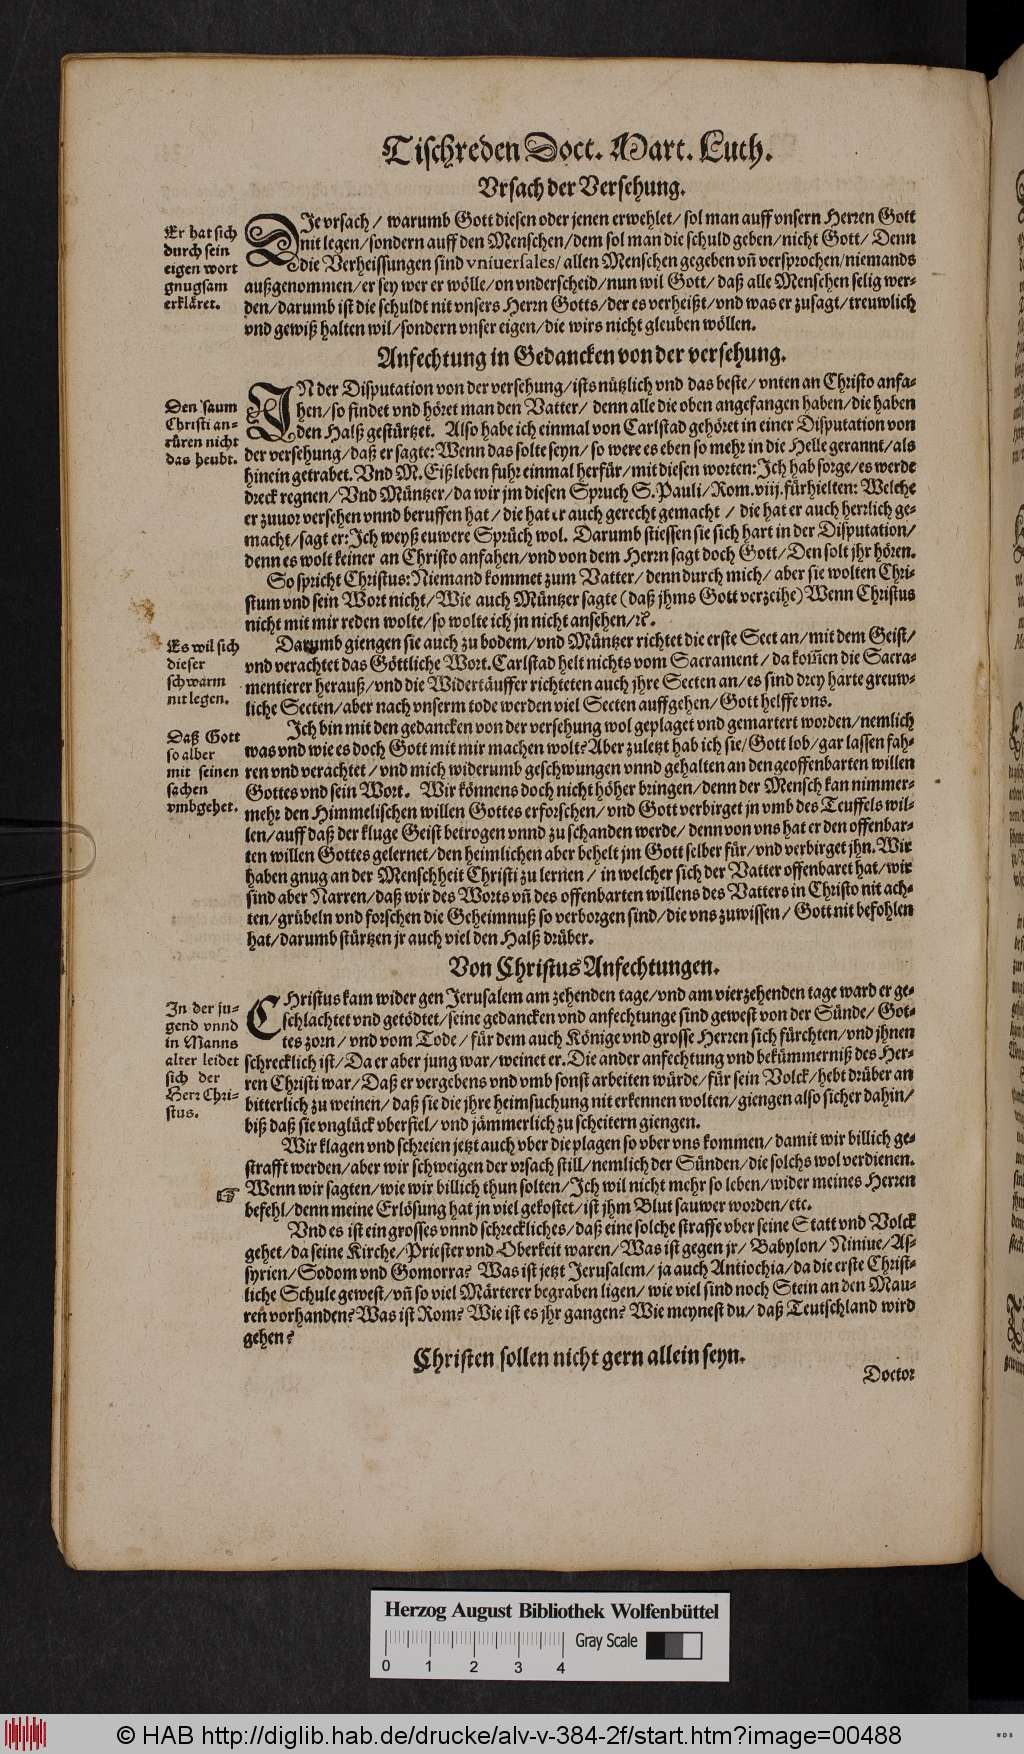 Tischreden Doct. Mart. Luth.
Vrsach der Versehung.
Er hat sich
durch sein
eigen wort
gnugsam
erkläret.
DIe vrsach / warumb Gott diesen oder jenen erwehlet / sol man auff vnsern Herren Gott
nit legen / sondern auff den Menschen / dem sol man die schuld geben / nicht Gott / Denn
die Verheissungen sind vniuersales / allen Menschen gegeben vn̄ versprochen / niemands
außgenommen / er sey wer er wölle / on vnderscheid / nun wil Gott / daß alle Menschen selig wer-
den / darumb ist die schuldt nit vnsers Herrn Gotts / der es verheißt / vnd was er zusagt / treuwlich
vnd gewiß halten wil / sondern vnser eigen / die wirs nicht gleuben wöllen.
Anfechtung in Gedancken von der versehung.
Den saum
Christi an-
rüren nicht
das heubt.
IN der Disputation von der versehung / ists nützlich vnd das beste / vnten an Christo anfa-
hen / so findet vnd höret man den Vatter / denn alle die oben angefangen haben / die haben
den Halß gestürtzet. Also habe ich einmal von Carlstad gehöret in einer Disputation von
der versehung / daß er sagte: Wenn das solte seyn / so were es eben so mehr in die Helle gerannt / als
hinein getrabet. Vnd M. Eißleben fuhr einmal herfür / mit diesen worten: Ich hab sorge / es werde
dreck regnen / Vnd Müntzer / da wir jm diesen Spruch S. Pauli / Rom. viij. fürhielten: Welche
er zuuor versehen vnnd beruffen hat / die hat er auch gerecht gemacht / die hat er auch herrlich ge-
macht / sagt er: Ich weyß euwere Sprüch wol. Darumb stiessen sie sich hart in der Disputation /
denn es wolt keiner an Christo anfahen / vnd von dem Herrn sagt doch Gott / Den solt jhr hören.
So spricht Christus: Niemand kommet zum Vatter / denn durch mich / aber sie wolten Chri-
stum vnd sein Wort nicht / Wie auch Müntzer sagte (daß jhms Gott verzeihe) Wenn Christus
nicht mit mir reden wolte / so wolte ich jn nicht ansehen / ꝛc.
Es wil sich
dieser
schwarm
nit legen.
Darumb giengen sie auch zu bodem / vnd Müntzer richtet die erste Sect an / mit dem Geist /
vnd verachtet das Göttliche Wort. Carlstad helt nichts vom Sacrament / da kom̄en die Sacra-
mentierer herauß / vnd die Widertäuffer richteten auch jhre Secten an / es sind drey harte greuw-
liche Secten / aber nach vnserm tode werden viel Secten auffgehen / Gott helffe vns.
Daß Gott
so alber
mit seinen
sachen
vmbgehet.
Ich bin mit den gedancken von der versehung wol geplaget vnd gemartert worden / nemlich
was vnd wie es doch Gott mit mir machen wolt? Aber zuletzt hab ich sie / Gott lob / gar lassen fah-
ren vnd verachtet / vnd mich widerumb geschwungen vnnd gehalten an den geoffenbarten willen
Gottes vnd sein Wort. Wir könnens doch nicht höher bringen / denn der Mensch kan nimmer-
mehr den Himmelischen willen Gottes erforschen / vnd Gott verbirget jn vmb des Teuffels wil-
len / auff daß der kluge Geist betrogen vnnd zu schanden werde / denn von vns hat er den offenbar-
ten willen Gottes gelernet / den heimlichen aber behelt jm Gott selber für / vnd verbirget jhn. Wir
haben gnug an der Menschheit Christi zu lernen / in welcher sich der Vatter offenbaret hat / wir
sind aber Narren / daß wir des Worts vn̄ des offenbarten willens des Vatters in Christo nit ach-
ten / grübeln vnd forschen die Geheimnuß so verborgen sind / die vns zuwissen / Gott nit befohlen
hat / darumb stürtzen jr auch viel den Halß drüber.
Von Christus Anfechtungen.
In der ju-
gend vnnd
in Manns
alter leidet
sich der
Herr Chri-
stus.
CHristus kam wider gen Jerusalem am zehenden tage / vnd am vierzehenden tage ward er ge-
schlachtet vnd getödtet / seine gedancken vnd anfechtunge sind gewest von der Sünde / Got-
tes zorn / vnd vom Tode / für dem auch Könige vnd grosse Herren sich fürchten / vnd jhnen
schrecklich ist / Da er aber jung war / weinet er. Die ander anfechtung vnd bekümmerniß des Her-
ren Christi war / Daß er vergebens vnd vmb sonst arbeiten würde / für sein Volck / hebt drüber an
bitterlich zu weinen / daß sie die jhre heimsuchung nit erkennen wolten / giengen also sicher dahin /
biß daß sie vnglück vberfiel / vnd jämmerlich zu scheitern giengen.
Wir klagen vnd schreien jetzt auch vber die plagen so vber vns kommen / damit wir billich ge-
strafft werden / aber wir schweigen der vrsach still / nemlich der Sünden / die solchs wol verdienen.
☞ Wenn wir sagten / wie wir billich thun solten / Ich wil nicht mehr so leben / wider meines Herren
befehl / denn meine Erlösung hat jn viel gekostet / ist jhm Blut sauwer worden / etc.
Vnd es ist ein grosses vnnd schreckliches / daß eine solche straffe vber seine Statt vnd Volck
gehet / da seine Kirche / Priester vnd Oberkeit waren / Was ist gegen jr / Babylon / Niniue / As-
syrien / Sodom vnd Gomorra? Was ist jetzt Jerusalem / ja auch Antiochia / da die erste Christ-
liche Schule gewest / vn̄ so viel Märterer begraben ligen / wie viel sind noch Stein an den Mau-
ren vorhanden? Was ist Rom? Wie ist es jhr gangen? Wie meynest du / daß Teutschland wird
gehen?
Christen sollen nicht gern allein seyn.
Doctor
Herzog August Bibliothek Wolfenbüttel
Gray Scale
0 1 2 3 4
© HAB http://diglib.hab.de/drucke/alv-v-384-2f/start.htm?image=00488